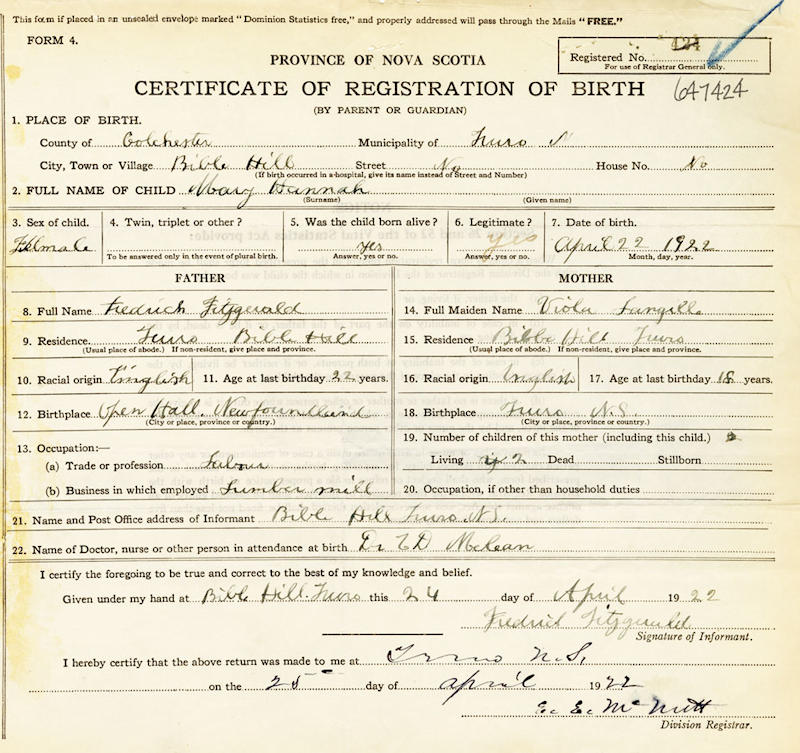 This form if placed in an unsealed envelope marked "Dominion Statistics free," and properly addressed will pass through the Mails "FREE."
FORM 4.
PROVINCE OF NOVA SCOTIA
Registered No. 424
For use of Registrar General only.
CERTIFICATE OF REGISTRATION OF BIRTH 647424
(BY PARENT OR GUARDIAN)
1. PLACE OF BIRTH.
County of Colchester Municipality of Truro N
City, Town or Village Bible Hill Street No House No. No
(If birth occurred in a hospital, give its name instead of Street and Number)
2. FULL NAME OF CHILD Mary Hannah
(Surname) (Given name)
3. Sex of child. 4. Twin, triplet or other? 5. Was the child born alive? 6. Legitimate? 7. Date of birth.
Felmale yes yes April 22 1922
To be answered only in the event of plural birth. Answer, yes or no. Answer, yes or no. Month, day, year.
FATHER MOTHER
8. Full Name Fedrick Fitzgerald 14. Full Maiden Name Viola Langille
9. Residence. Truro Bible Hill 15. Residence Bibbe Hill Truro
(Usual place of abode.) If non-resident, give place and province. (Usual place of abode.) If non-resident, give place and province.
10. Racial origin English 11. Age at last birthday 22 years. 16. Racial origin English 17. Age at last birthday 18 years.
12. Birthplace Open Hall. Newfoundland 18. Birthplace Truro N.S.
(City or place, province or country.) (City or place, province or country.)
13. Occupation:— 19. Number of children of this mother (including this child.)
(a) Trade or profession Labour Living 2 Dead Stillborn
(b) Business in which employed Lumber mill 20. Occupation, if other than household duties
21. Name and Post Office address of Informant Bible Hill Truro N.S.
22. Name of Doctor, nurse or other person in attendance at birth Dr E D McLean
I certify the foregoing to be true and correct to the best of my knowledge and belief.
Given under my hand at Bible Hill. Truro this 24 day of April 1922
Fedrick Fitzgerald
Signature of Informant.
I hereby certify that the above return was made to me at Truro N.S.
on the 25 day of April 1922
E. E. McNutt
Division Registrar.